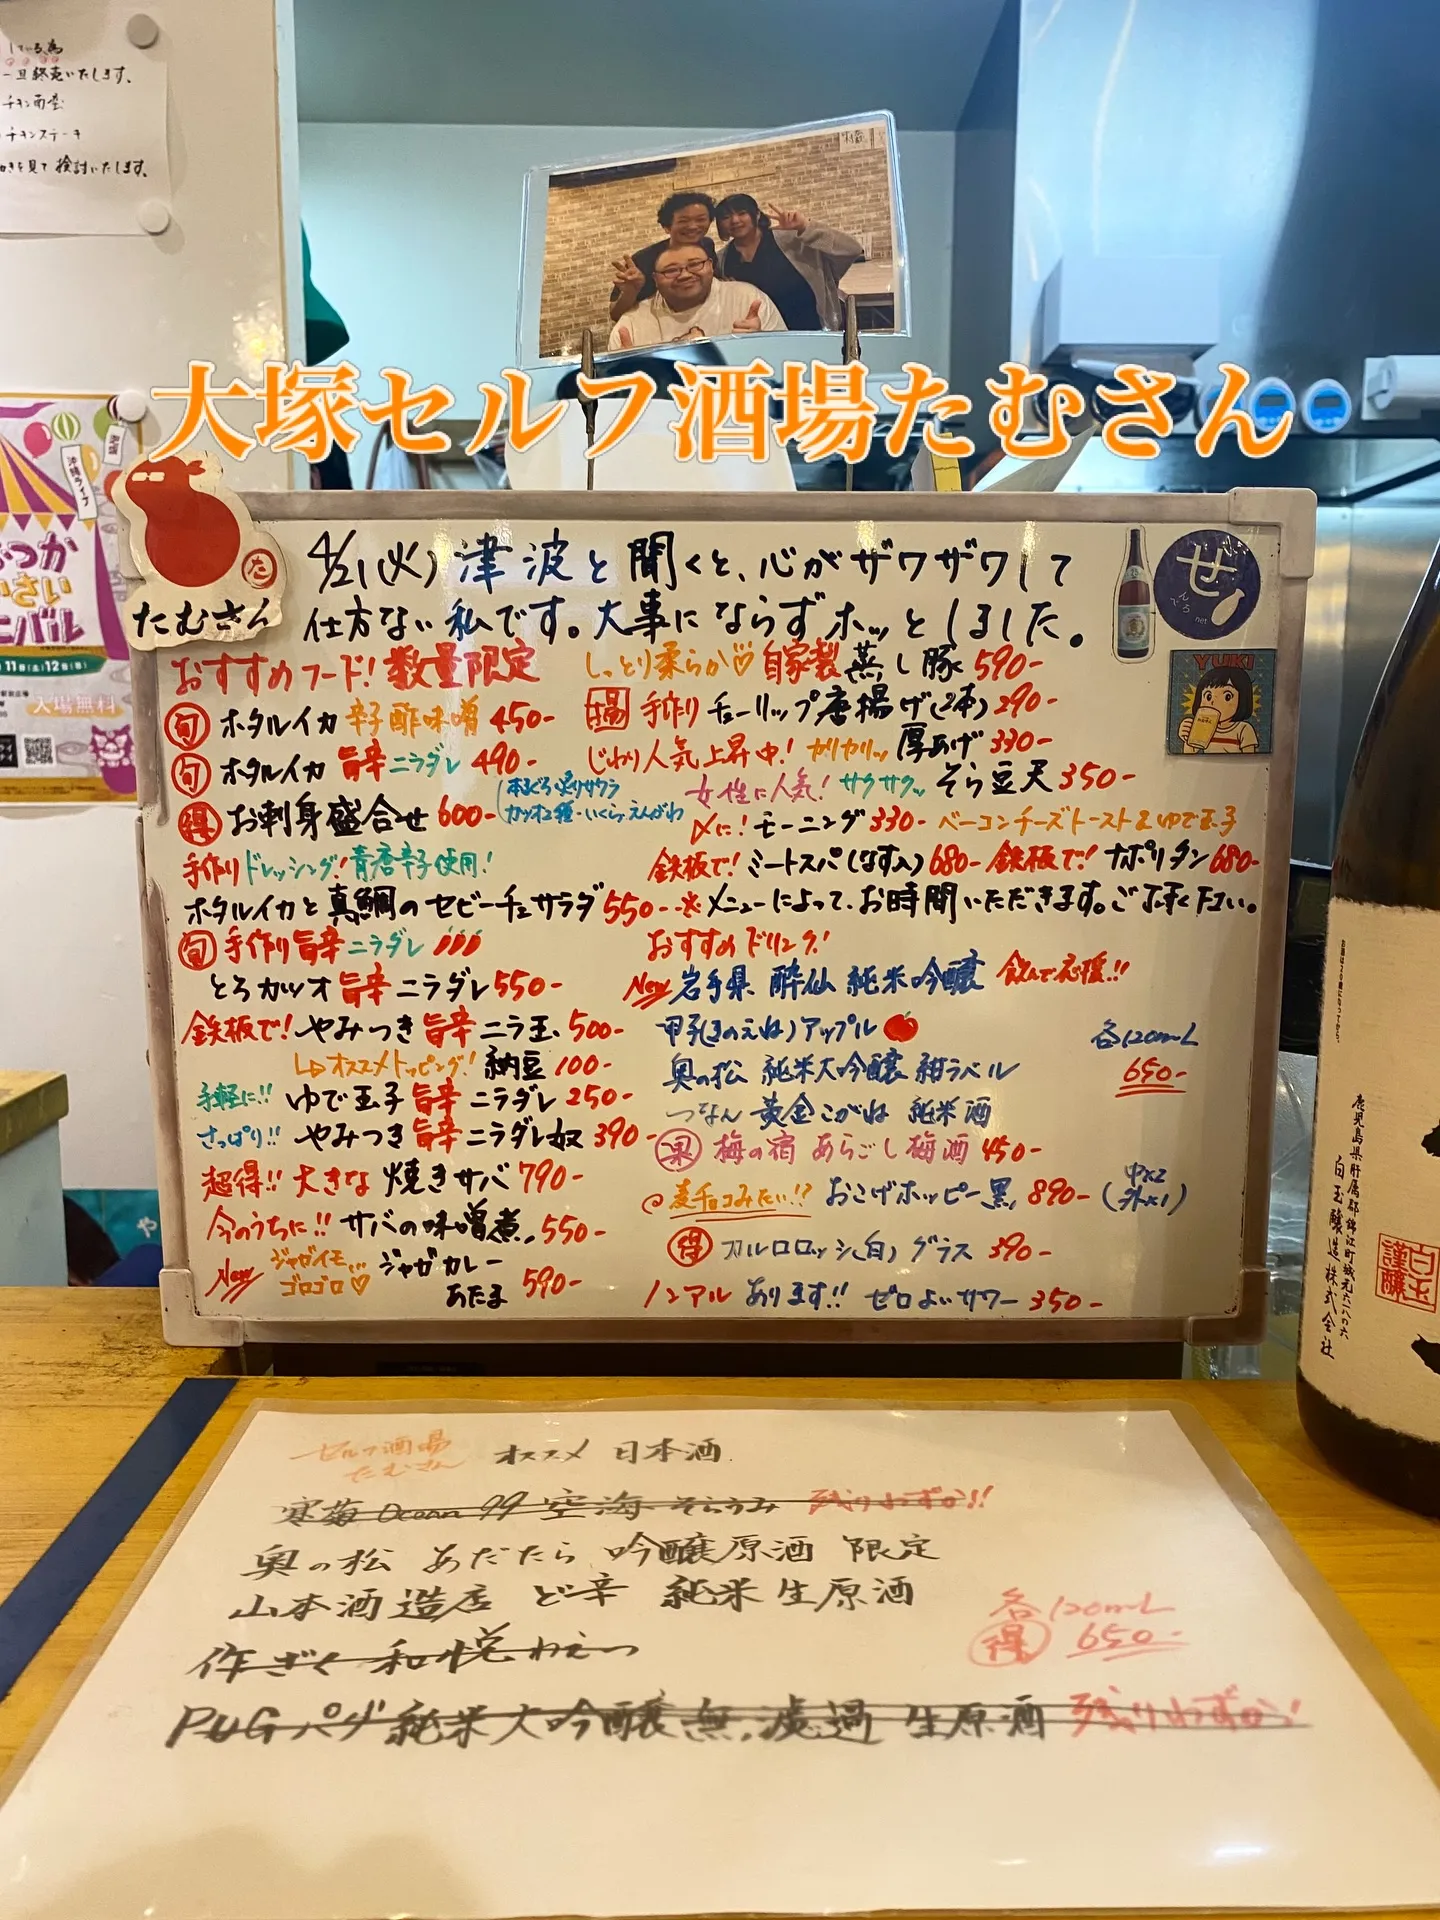 している為
一旦終売いたします。
チキン南蛮
チキンステーキ
を見て検討いたします。
大塚セルフ酒場たむさん
たむさん
4/21(火)津波と聞くと、心がザワザワして
仕方ない私です。大事にならずホッとしました。
せ
んべろ
net
YUKI
おすすめフード!数量限定
旬 ホタルイカ 辛子酢味噌 450-
旬 ホタルイカ 旨辛ニラダレ 490-
得 お刺身盛合せ 600-
本まぐろ 炙りサワラ
カツオ2種・いくら・えんがわ
手作りドレッシング!青唐辛子使用!
ホタルイカと真鯛のセビーチェサラダ 550-
旬 手作り旨辛ニラダレ
とろカツオ 旨辛ニラダレ 550-
鉄板で!やみつき旨辛ニラ玉 500-
オススメトッピング!納豆 100-
手軽に!! ゆで玉子 旨辛ニラダレ 250-
さっぱり!! やみつき旨辛ニラダレ奴 390-
超得!! 大きな焼きサバ 790-
今のうちに!! サバの味噌煮 550-
New ジャガイモ… ゴロゴロ♡ ジャガカレーあたま 590-
しっとり柔らか♡自家製蒸し豚 590-
手作りチューリップ唐揚げ(2本) 290-
じわり人気上昇中!カリカリッ厚あげ 330-
女性に人気!サクサクッそら豆天 350-
〆に!モーニング 330- ベーコンチーズトースト&ゆで玉子
鉄板で!ミートスパ(なす入) 680- 鉄板で!ナポリタン 680-
※メニューによって、お時間いただきます。ご了承下さい。
おすすめドリンク!
New 岩手県 酔仙 純米吟醸 飲んで応援!!
甲子(きのえね)アップル
奥の松 純米大吟醸 紺ラベル
つなん 黄金こがね 純米酒
各120mL
650-
果 梅の宿 あらごし梅酒 450-
麦チョコみたい!? おこげホッピー黒 890- (中×2 外×1)
得 カルロロッシ(白)グラス 390-
ノンアルあります!! ゼロよいサワー 350-
セルフ酒場
たむさん
オススメ 日本酒
寒菊 Ocean 99 空海 そらうみ 残りわずか!!
奥の松 あだたら 吟醸原酒 限定
山本酒造店 ど辛 純米生原酒
作ざく 和悦わえつ
PUG パグ 純米大吟醸 無濾過 生原酒 残りわずか!
各120mL
得 650-
11(土)12(日)
入場無料
沖縄ライブ
お酒は20歳になってから。
鹿児島県肝属郡錦江町城元六二八の六
白玉醸造株式会社
白玉謹醸